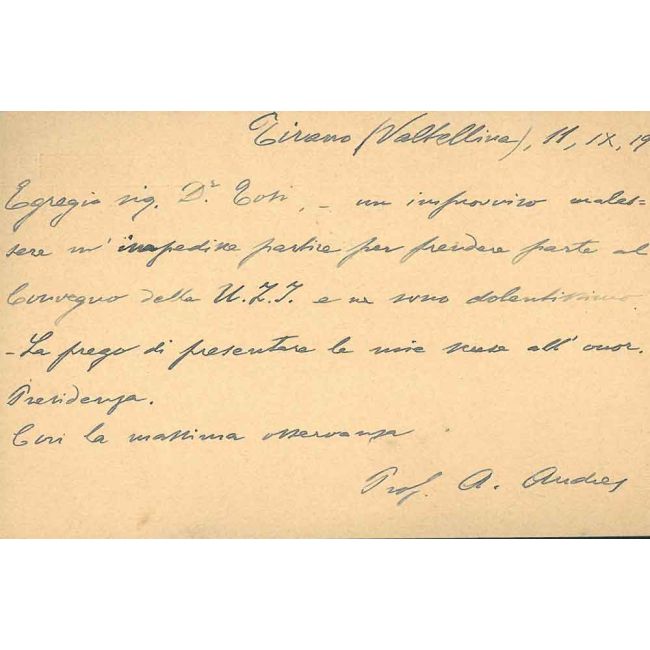 Tirano (Valtellina), 11, IX, 19
Egregio sig. Dr Tosi, – un improvviso males-
sere m' impedisce partire per prendere parte al
Convegno della U.Z.I. e ne sono dolentissimo.
– La prego di presentare le mie scuse all' onor.
Presidenza.
Con la massima osservanza
Prof. A. Andres